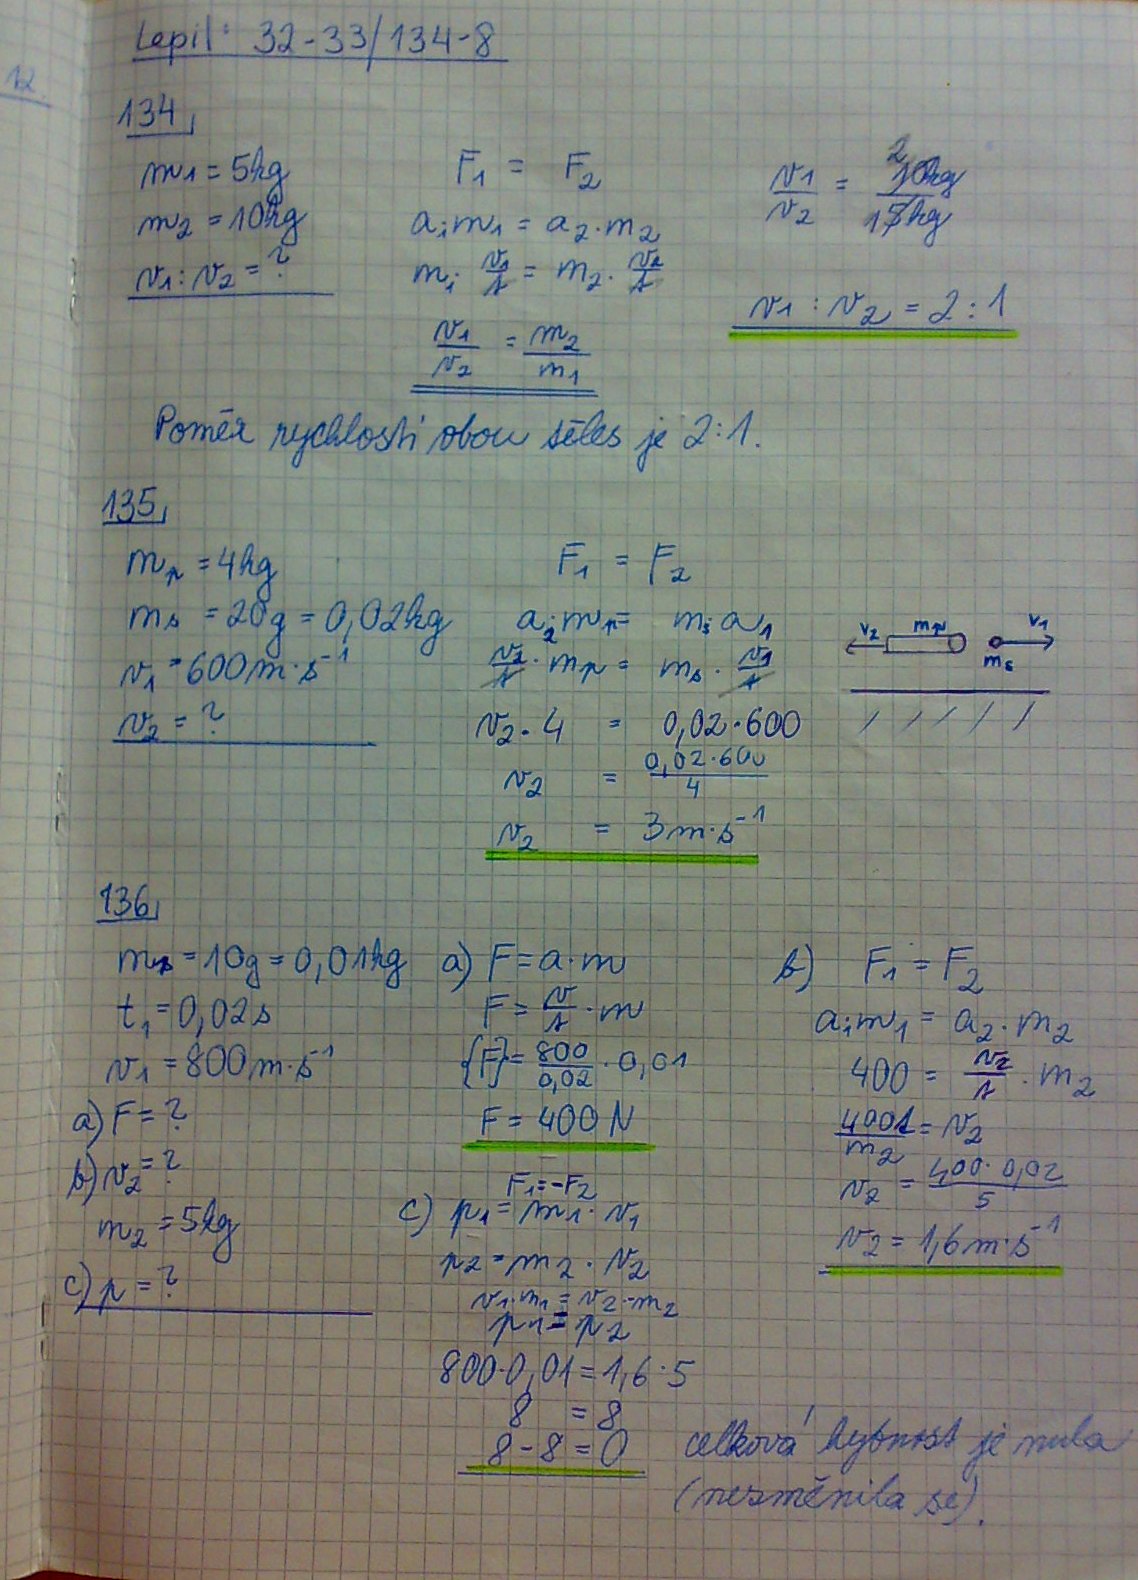 Lepil: 32-33/134-8
12.
134,
m1 = 5kg
m2 = 10kg
v1 : v2 = ?
F1 = F2
a1 m1 = a2 · m2
m1 · v1/t = m2 · v2/t
v1/v2 = m2/m1
v1/v2 = 2 10kg/1 5kg
v1 : v2 = 2 : 1
Poměr rychlosti obou těles je 2:1.
135,
mp = 4kg
ms = 20g = 0,02kg
v1 = 600 m·s⁻¹
v2 = ?
F1 = F2
a2 · mp = ms · a1
v2/t · mp = ms · v1/t
v2 · 4 = 0,02 · 600
v2 = 0,02·600/4
v2 = 3 m·s⁻¹
v2 mp v1
ms
136,
ms = 10g = 0,01kg
t1 = 0,02s
v1 = 800 m·s⁻¹
a) F = ?
b) v2 = ?
m2 = 5kg
c) p = ?
a) F = a · m
F = v/t · m
{F} = 800/0,02 · 0,01
F = 400 N
b) F1 = F2
a1 m1 = a2 · m2
400 = v2/t · m2
400t/m2 = v2
v2 = 400 · 0,02/5
v2 = 1,6 m·s⁻¹
F1 = -F2
c) p1 = m1 · v1
p2 = m2 · v2
v1·m1 = v2·-m2
p1 = p2
800·0,01 = 1,6·5
8 = 8
8 - 8 = 0
celková hybnost je nula
(nezměnila se).